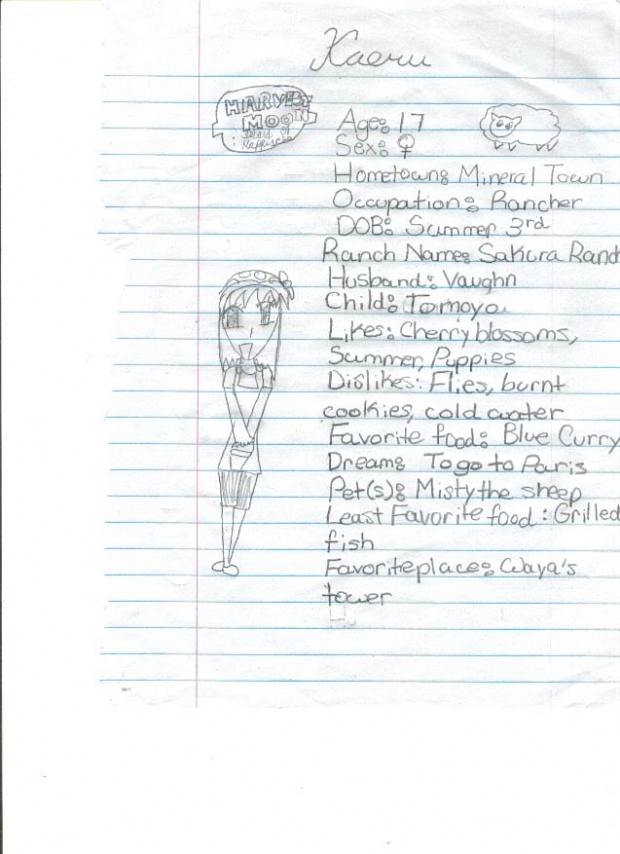 Kaeru
HARVEST
MOON
: Island of
Happiness
Age: 17
Sex: ♀
Hometown: Mineral Town
Occupation: Rancher
DOB: Summer 3rd
Ranch Name: Sakura Ranch
Husband: Vaughn
Child: Tomoyo
Likes: Cherry blossoms,
Summer, Puppies
Dislikes: Flies, burnt
cookies, cold water
Favorite food: Blue Curry
Dream: To go to Paris
Pet(s): Misty the sheep
Least Favorite food: Grilled
fish
Favorite place: Waya's
tower